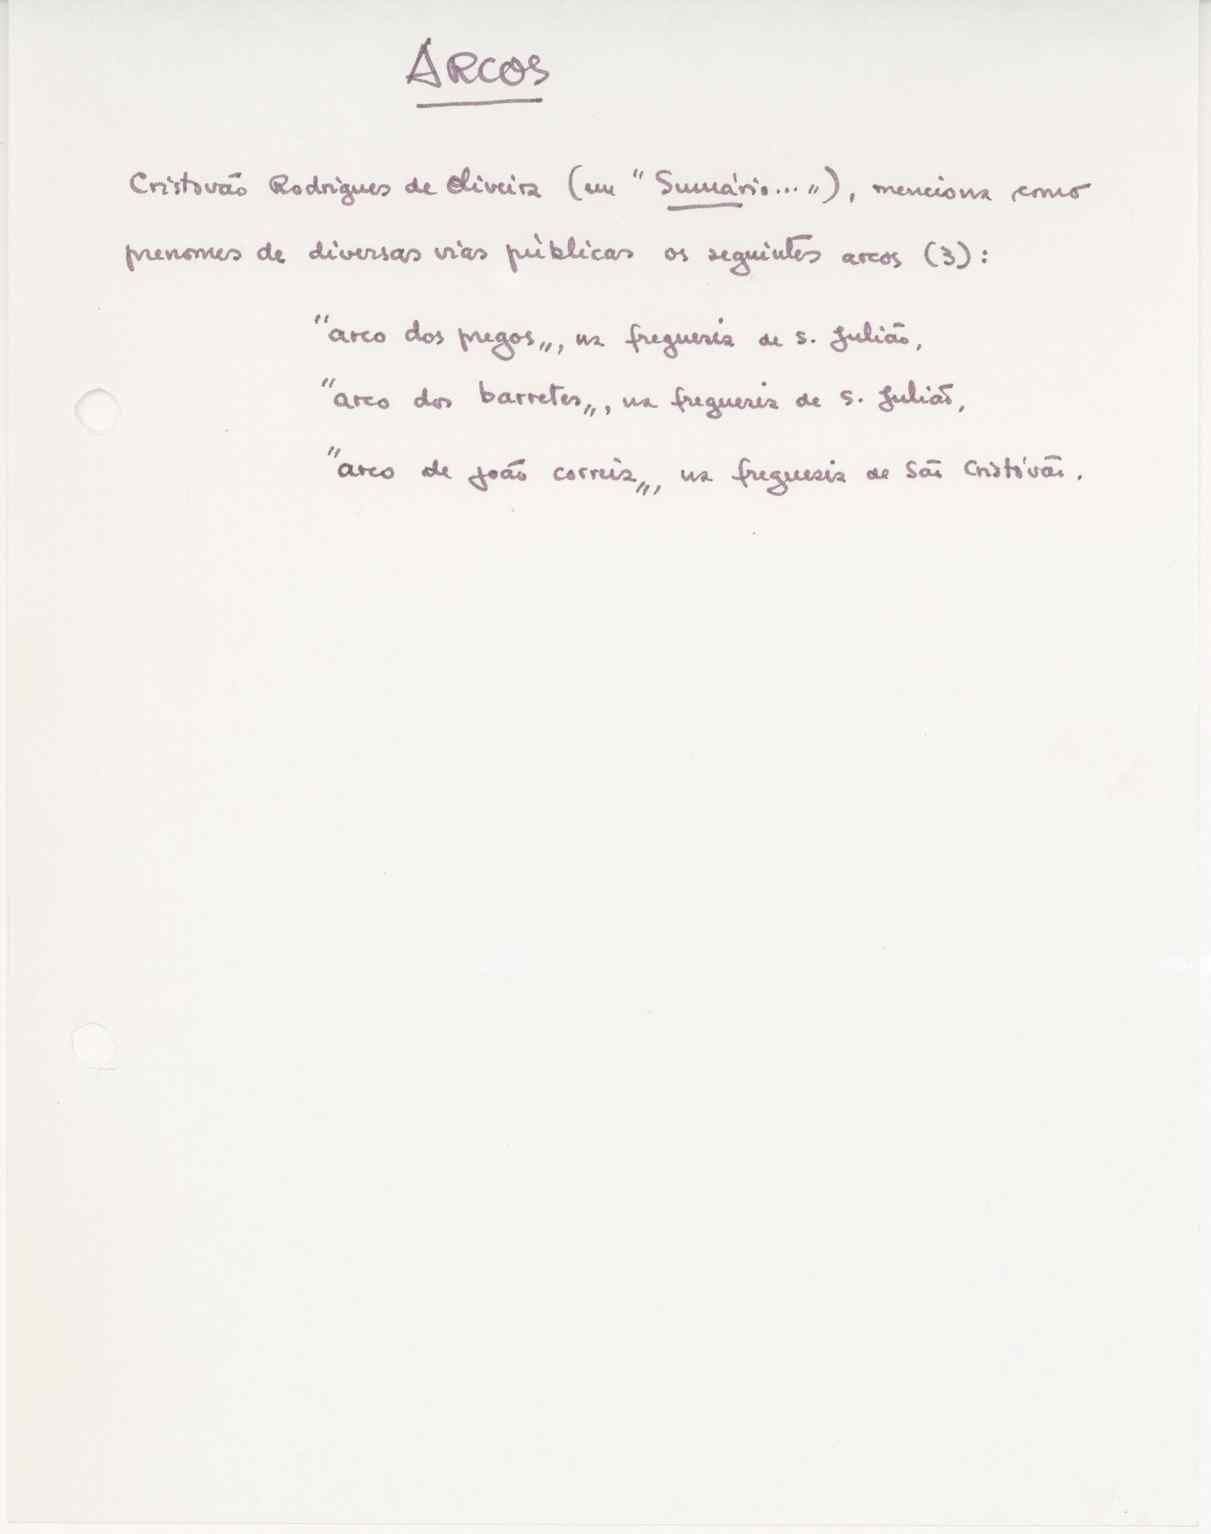 ARCOS
Cristovão Rodrigues de Oliveira (em "Sumário..."), menciona como
prenomes de diversas vias públicas os seguintes arcos (3):
"arco dos pregos", na freguesia de S. Julião,
"arco dos barretes", na freguesia de S. Julião,
"arco de João Correia", na freguesia de São Cristóvão.